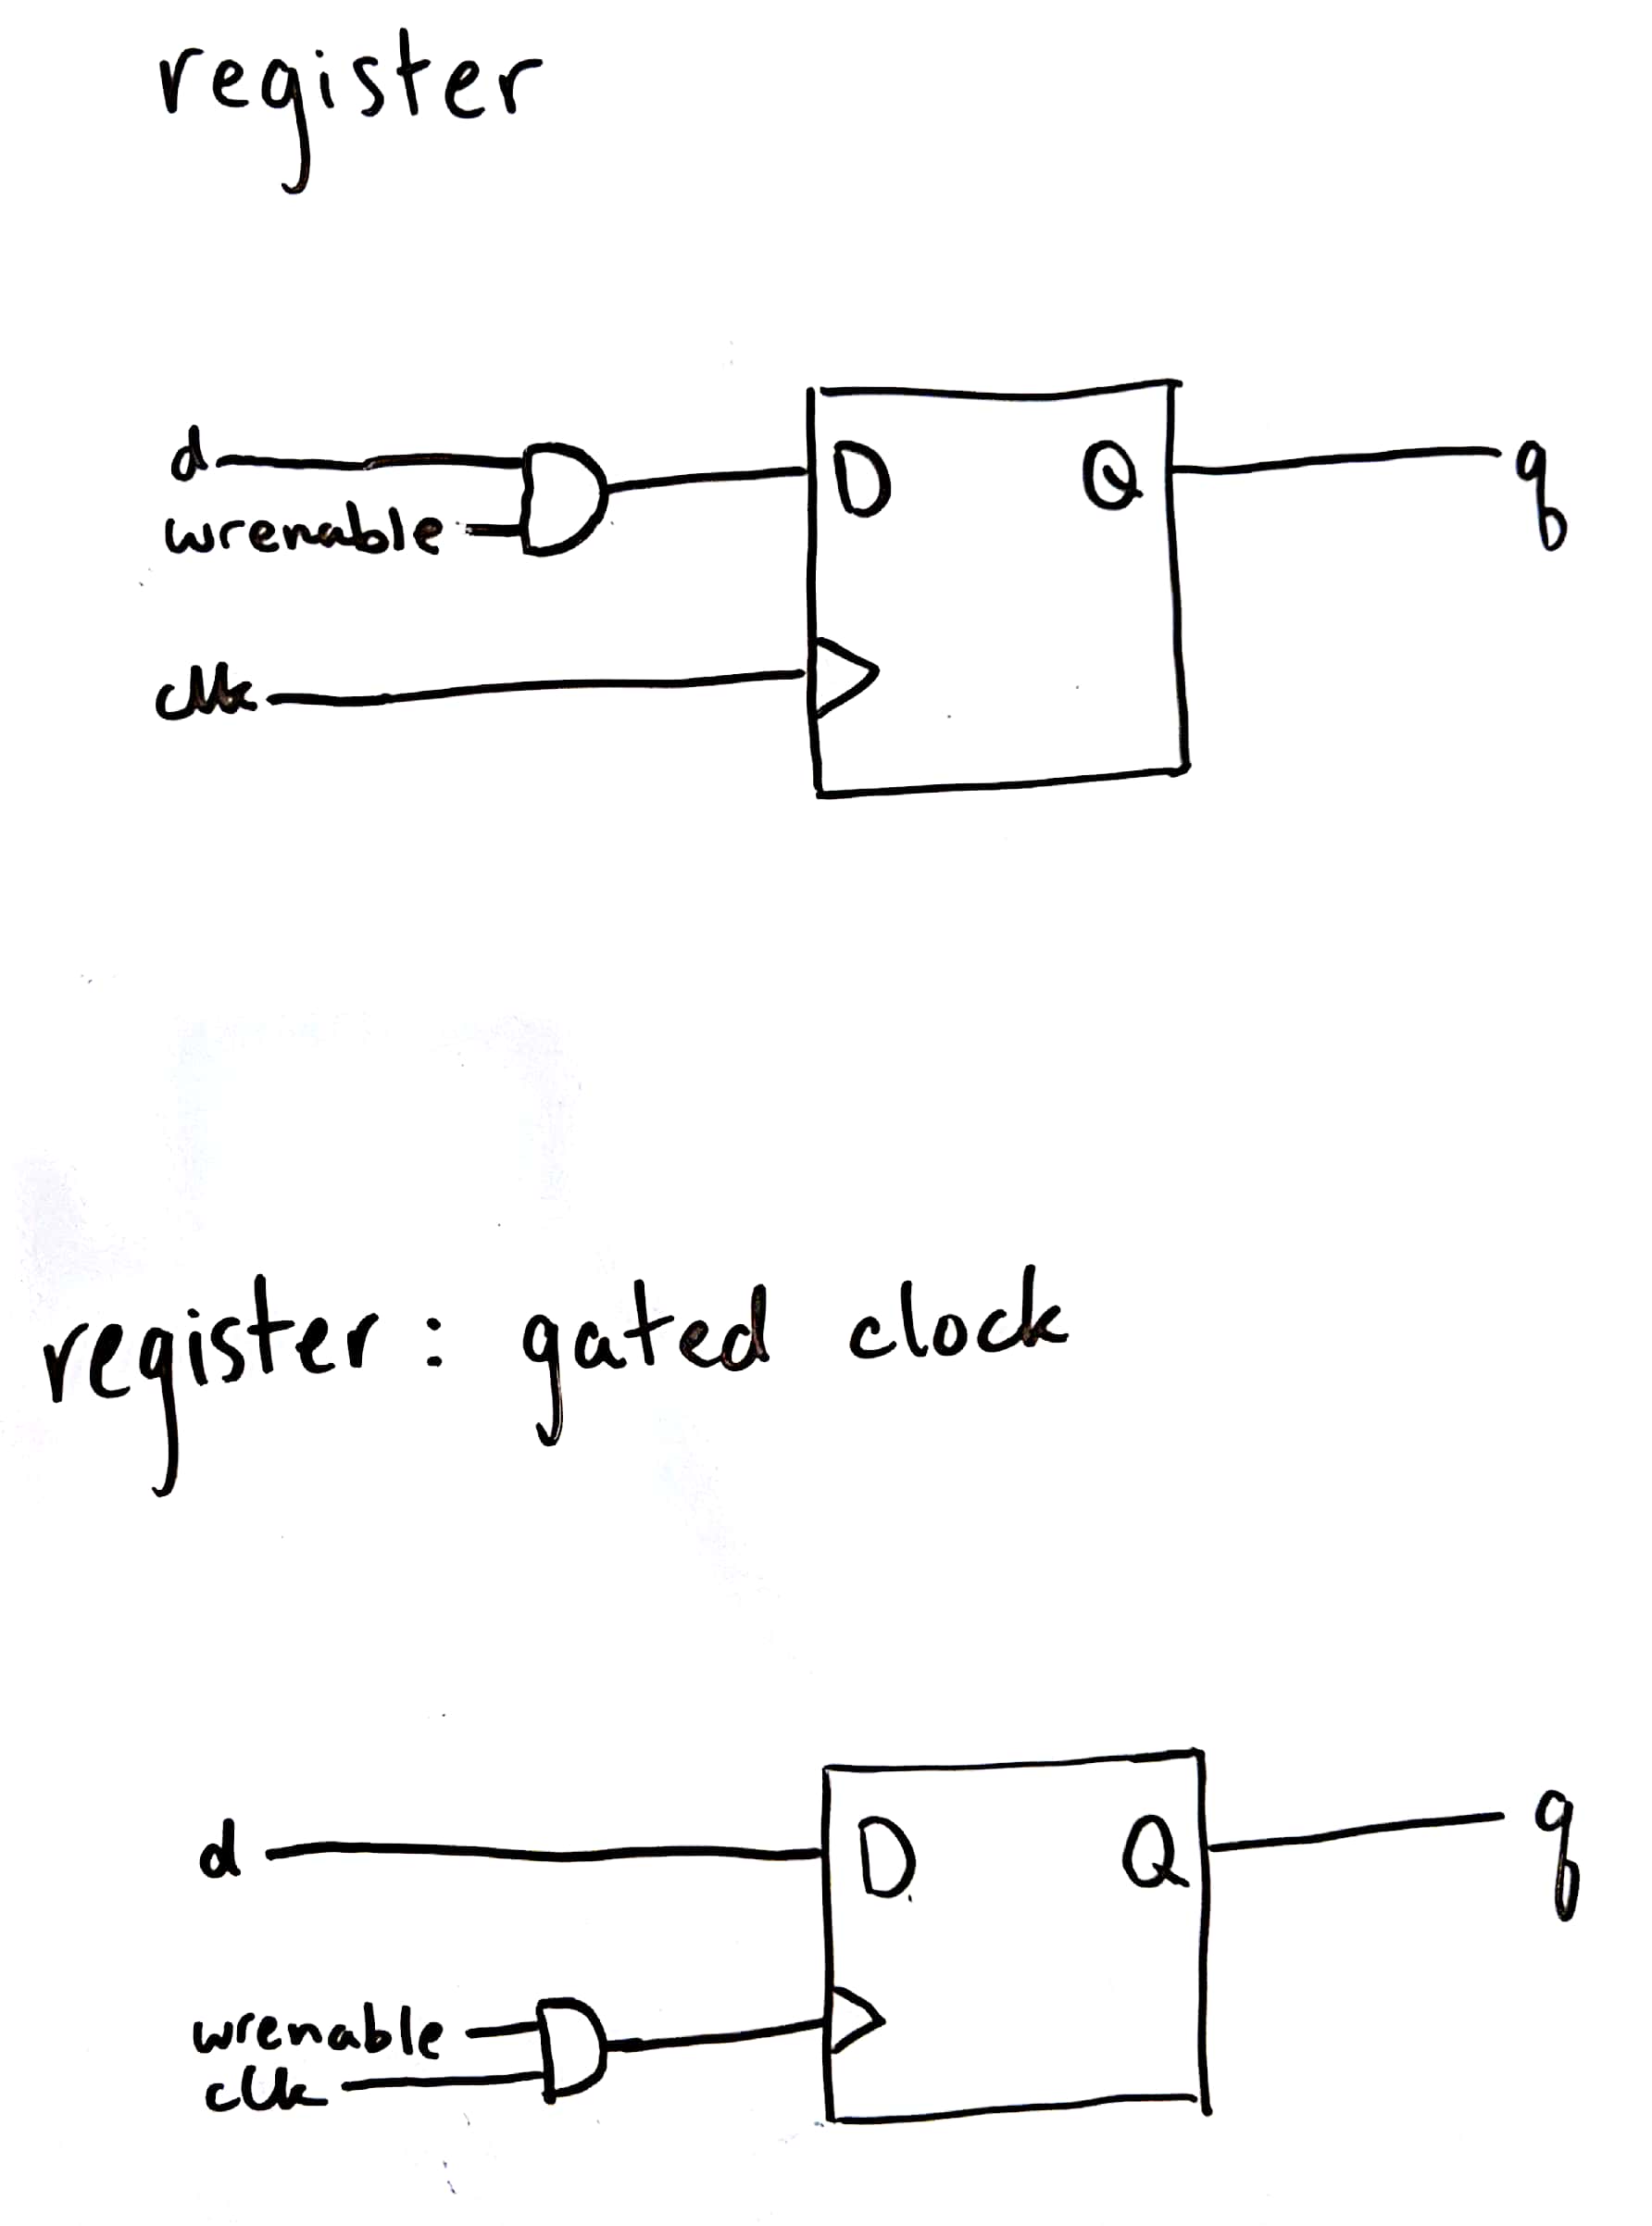 register
d
D
Q
q
wrenable
clk
register: gated clock
d
D
Q
q
wrenable
clk